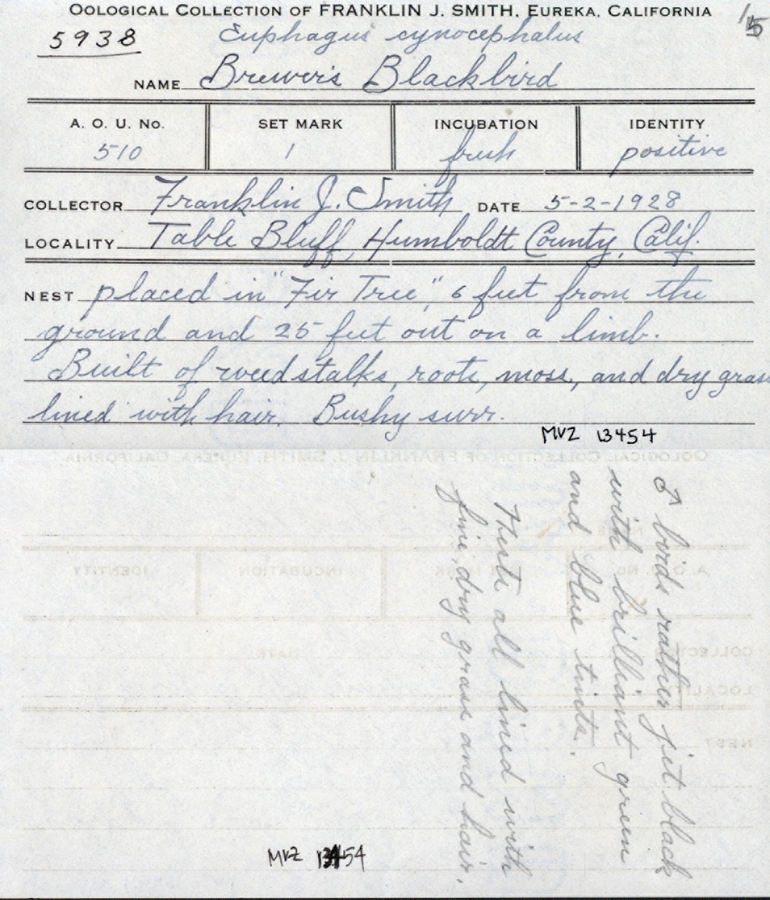 OOLOGICAL COLLECTION OF FRANKLIN J. SMITH, EUREKA, CALIFORNIA
5938
Euphagus cynocephalus
NAME Brewer's Blackbird
A. O. U. No. SET MARK INCUBATION IDENTITY
510 1 fresh positive
COLLECTOR Franklin J. Smith DATE 5-2-1928
LOCALITY Table Bluff, Humboldt County, Calif.
NEST placed in "Fir Tree", 6 feet from the
ground and 25 feet out on a limb.
Built of weedstalks, roots, moss, and dry grass
lined with hair. Bushy surr.
MVZ 13454
♂ birds rather jet black
with brilliant green
and blue tints.
all lined with
fine dry grass and hair.
MVZ 13454